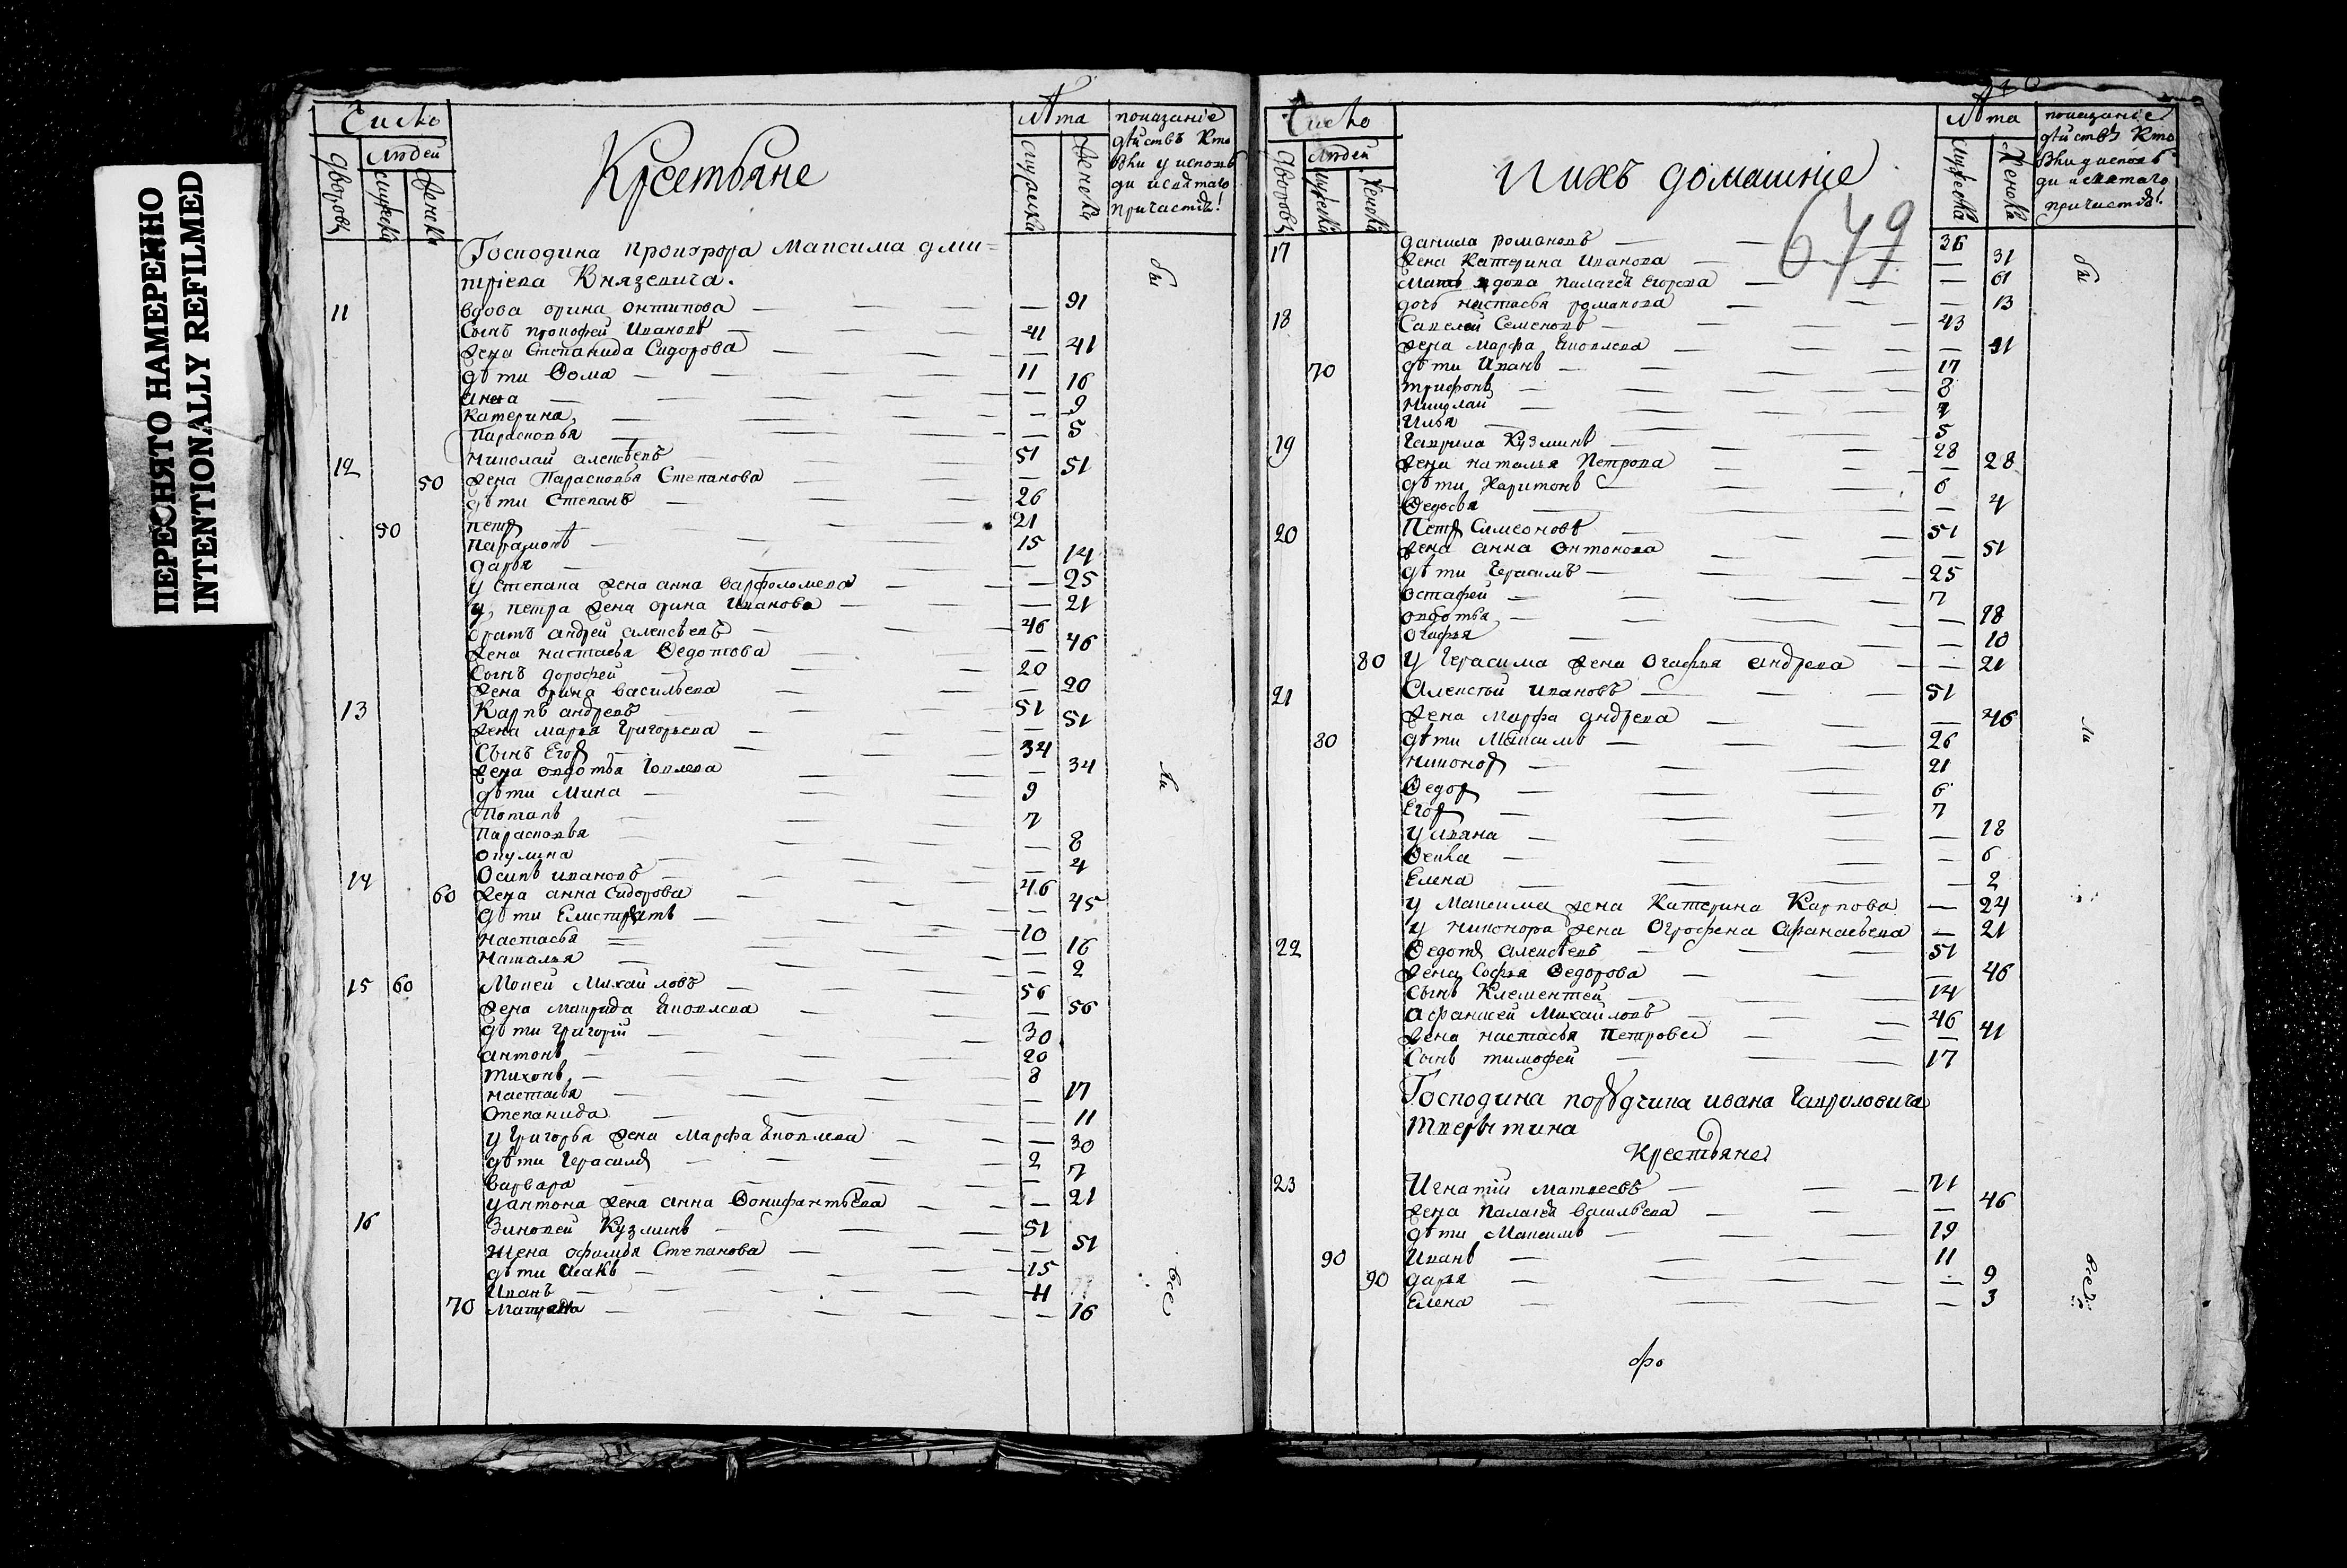 ПЕРЕСНЯТО НАМЕРЕННО
INTENTIONALLY REFILMED
Число
Дворовъ
людей
мужеска
женска
Крестьяне
Лѣта
мужеска
женска
показаніе
дѣйствъ Кто
были у испове
ди и святаго
причастія
Господина прокурора Максима дми=
тріева Князевича.
11 вдова орина онтипова — 91
Сынъ прокофей Ивановъ 41
жена Степанида Сидорова — 41
дѣти Ѳома 11
анна — 16
Катерина — 9
Парасковья — 5
12 Николай алексѣевъ 51
50 жена Парасковья Степанова — 51
дѣти Степанъ 26
50 петръ 21
парамонъ 15
дарья — 14
у степана жена анна варфоломева — 25
у петра жена орина Иванова — 21
братъ андрей алексѣевъ 46
жена настасья Ѳедотова — 46
Сынъ дорофей 20
жена орина васильева — 20
13 Карпъ андревъ 51
жена марья Григорьева — 51
Сынъ Егоръ 34
жена овдотья Iовлева — 34
дѣти Мина 9
Потапъ 7
Парасковья — 8
окулина — 4
14 Осипъ ивановъ 46
60 жена анна Сидорова — 45
дѣти Елистратъ 10
настасья — 16
Наталья — 2
15 60 Мокей Михайловъ 56
жена маврида Яковлева — 56
дѣти григорій 30
антонъ 20
тихонъ 8
настасья — 17
степанида — 11
у Григорья жена Марфа Яковлева — 30
дѣти Герасимъ 2
варвара — 7
у антона жена анна Ѳонифантьева — 21
16 Зиновей Кузминъ 51
жена офимья Степанова — 51
дѣти Исакъ 15
Иванъ 11
70 Матрена — 16
бы
ли
все
Число
Дворовъ
людей
мужеска
женска
И ихъ домашніе
679
Лѣта
мужеска
женска
показаніе
дѣйствъ Кто
были у исповѣ
ди и святаго
причастія
17 данила романовъ 36
жена Катерина Иванова — 31
мать вдова палагея Егорова — 61
дочь настасья романова — 13
18 Савелей Семеновъ 43
жена марфа Яковлева — 31
70 дѣти Иванъ 17
трифонъ 8
николай 7
Илья 5
19 Гаврила Кузминъ 28
жена наталья Петрова — 28
дѣти Харитонъ 6
Ѳедосья — 4
20 Петръ Симеоновъ 51
жена анна онтонова — 51
дѣти Герасимъ 25
остафей 7
овдотья — 18
огафья — 10
80 у Герасима жена Огафья андрева — 21
21 Алексѣй ивановъ 51
жена марфа андрева — 46
80 дѣти Максимъ 26
никоноръ 21
Ѳедоръ 6
Егоръ 7
ульяна — 18
Ѳекла — 6
Елена — 2
у Максима жена Катерина Карпова — 24
у никонора жена Огрофена афанасьева — 21
22 Ѳедотъ алексѣевъ 51
жена Софья Ѳедорова — 46
Сынъ Клементей 14
афанасей Михайловъ 46
жена настасья Петрова — 41
Сынъ тимофей 17
Господина порудчика ивана Гавриловича
Тверытина
Крестьяне
23 Игнатій матвеевъ 71
жена палагея васильева — 46
дѣти Максимъ 19
90 Иванъ 11
90 дарья — 9
Елена — 3
бы
ли
все